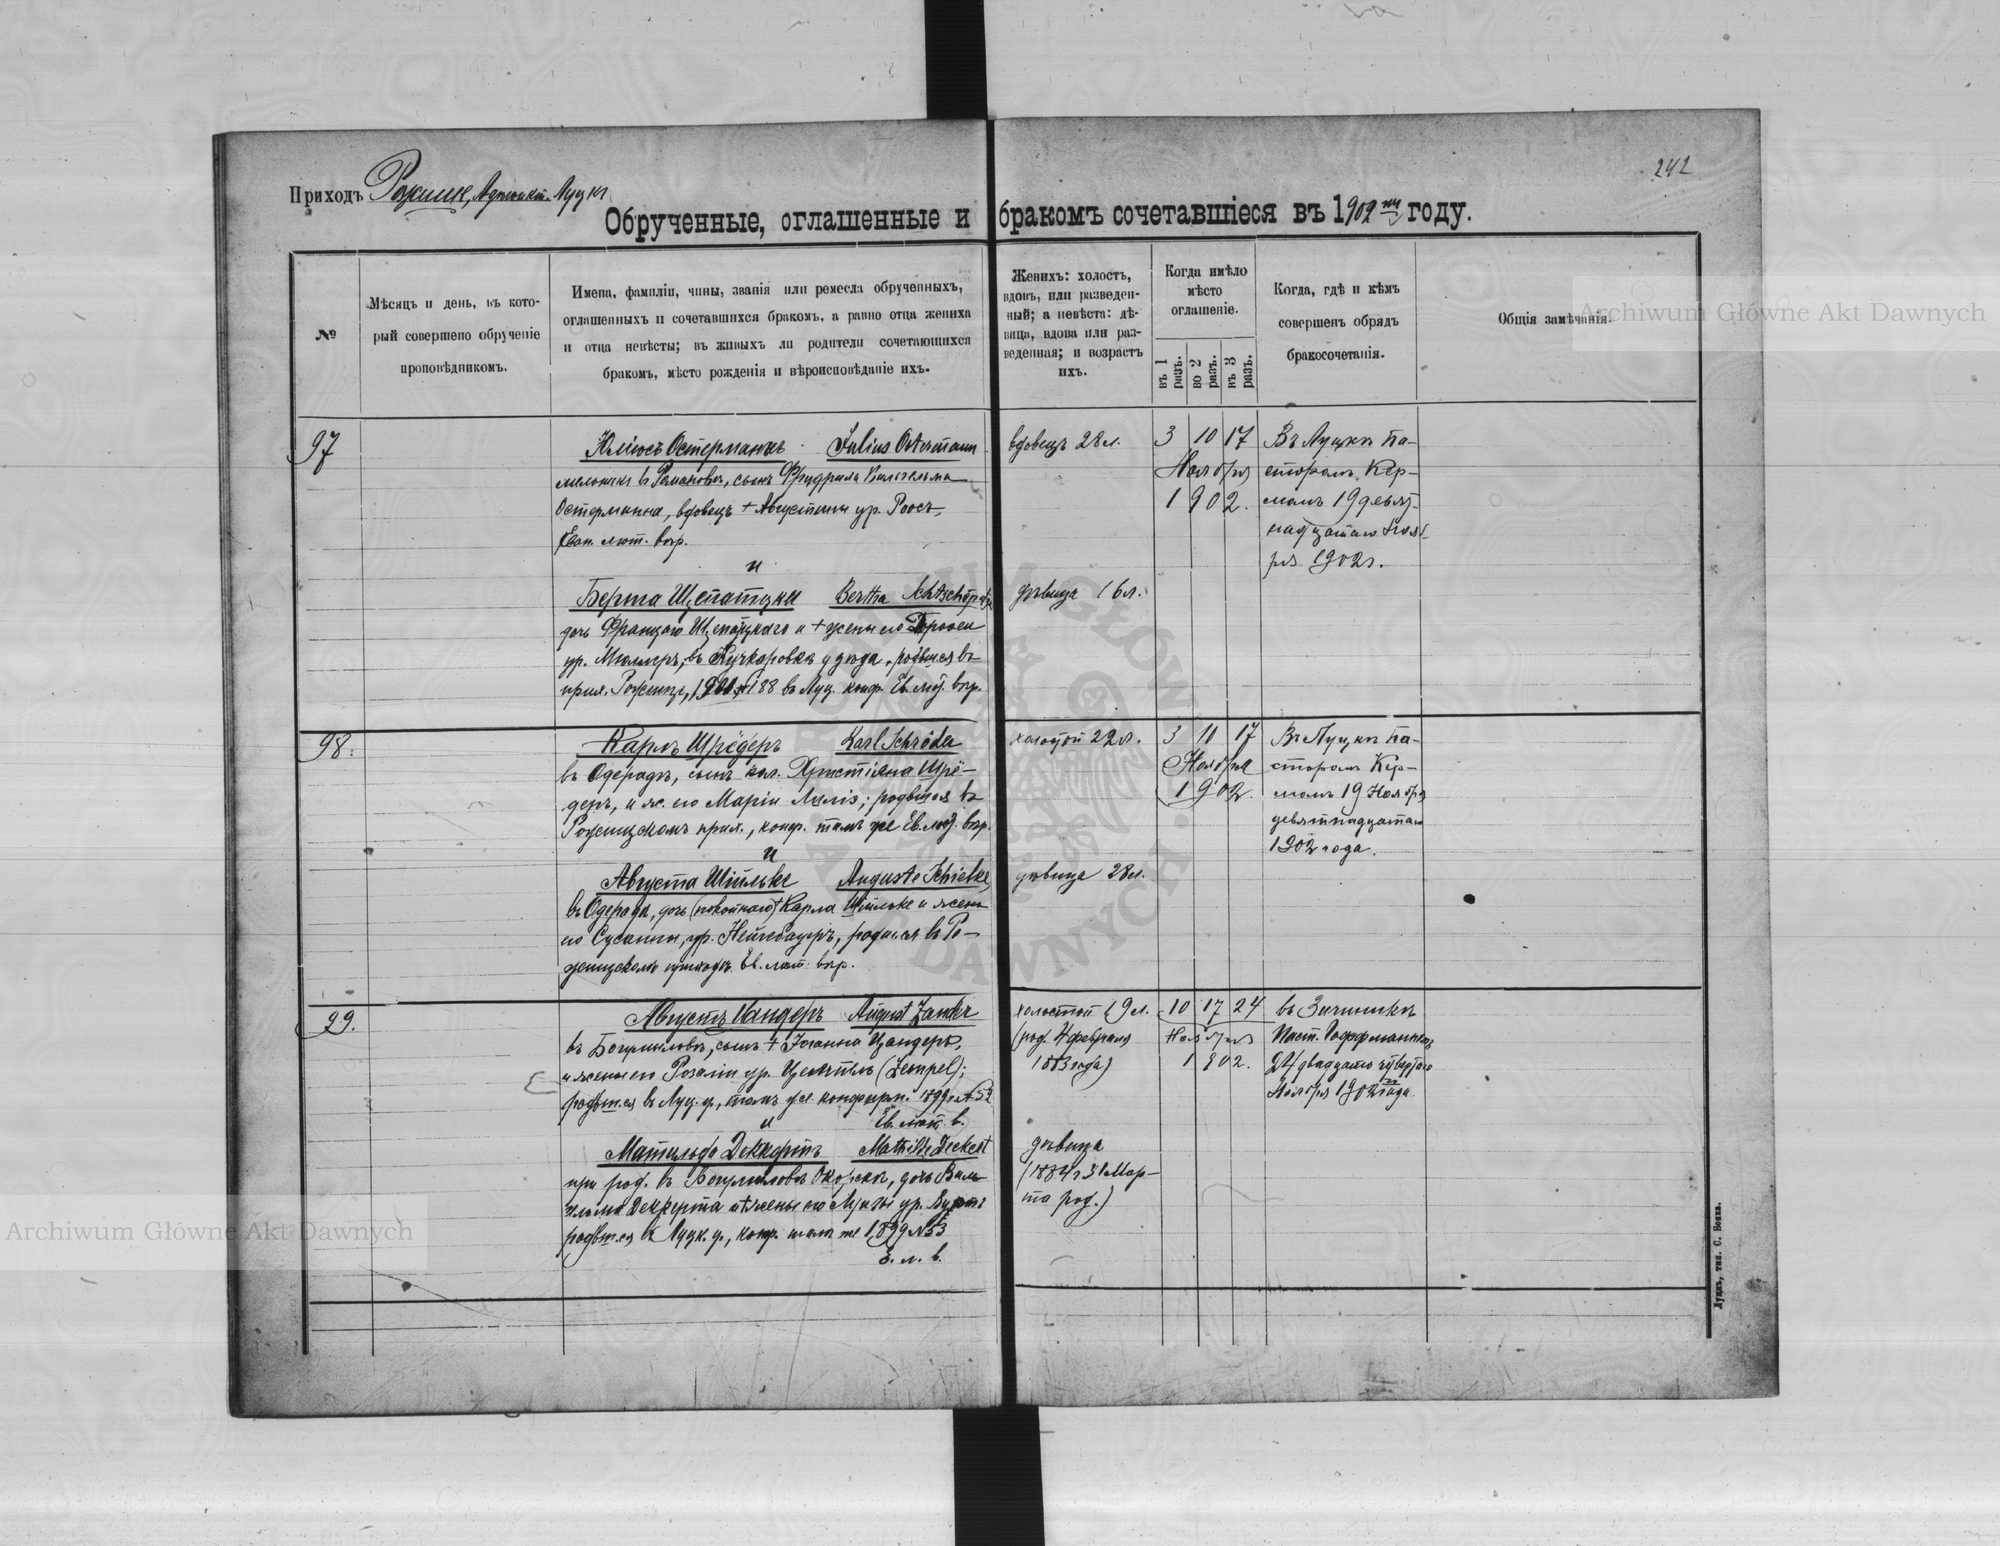 242
Приходъ Рожище, Луцкъ
Обрученные, оглашенные и бракомъ сочетавшіеся въ 1902 году.
№
Мѣсяцъ и день, въ кото-
рый совершено обрученіе
проповѣдникомъ.
Имена, фамиліи, чины, званія или ремесла обрученныхъ,
оглашенныхъ и сочетавшихся бракомъ, а равно отца жениха
и отца невѣсты; въ живыхъ ли родители сочетающихся
бракомъ, мѣсто рожденія и вѣроисповѣданіе ихъ.
Женихъ: холостъ,
вдовъ, или разведен-
ный; а невѣста: дѣ-
вица, вдова или раз-
веденная; и возрастъ
ихъ.
Когда имѣло
мѣсто
оглашеніе.
въ 1
разъ.
во 2
разъ.
въ 3
разъ.
Когда, гдѣ и кѣмъ
совершенъ обрядъ
бракосочетанія.
Общія замѣчанія.
97
Юліусъ Остерманнъ Julius Ostermann
мельникъ въ Романовѣ, сынъ Фридриха Вильгельма
Остерманна, вдовецъ + Августины ур. Роосъ,
Еван. лют. вѣр.
и
Берта Щепатцки Bertha
дочь Щепатцкаго и + жены его
ур. Мюллеръ, въ у дѣда, родился въ
прих. Рожище, 188 въ Луц. конф. Ев. лют. вѣр.
вдовецъ 28 л.
дѣвица 16 л.
3 10 17
Ноября
1902.
Въ Луцкѣ па-
сторомъ Кер-
момъ 19 девят-
надцатаго Нояб-
ря 1902 г.
98.
Карлъ Шрёдеръ Karl Schröder
въ Одерадѣ, сынъ кол. Христіяна Шрё-
деръ, и ж. его Маріи ; родился въ
Рожищскомъ прих., конф. тамъ же Ев. лют. вѣр.
и
Августа Шільке Auguste Schielke
въ Одерадѣ, дочь (покойнаго) + Карла Шільке и жены
его Сусанны, ур. Нейгебауеръ, родился въ Ро-
жищскомъ приходѣ. Ев. лют. вѣр.
холостой 22 л.
дѣвица 28 л.
3 10 17
Ноября
1902.
Въ Луцкѣ па-
сторомъ Кер-
момъ 19 Ноября
девятнадцатаго
1902 года.
99.
Августъ Цандеръ August Zander
въ Богумиловѣ, сынъ + Іоганна Цандеръ,
и жены его Розаліи ур. Цемпель (Zempel);
родился въ Луц. у., тамъ же конфирм. 1899 № 52
Ев. лют. в.
и
Матильда Деккертъ Mathilde Deckert
при род. въ Богумиловѣ , дочь Виль-
гельма Деккерта и жены его Луизы ур.
родился въ Луцк. у., конф. тамъ же 1899 № 53
Е. л. в.
холостой 19 л.
(род. 4 февраля
1883 года)
дѣвица
(1884 г 31 Мар-
та род.)
10 17 24
Ноября
1902.
въ
Паст. Гоффманномъ
24 двадцать четвертаго
Ноября 1902 года.
Луцкъ, тип. С. Бокка.
Archiwum Główne Akt Dawnych
Archiwum Główne Akt Dawnych